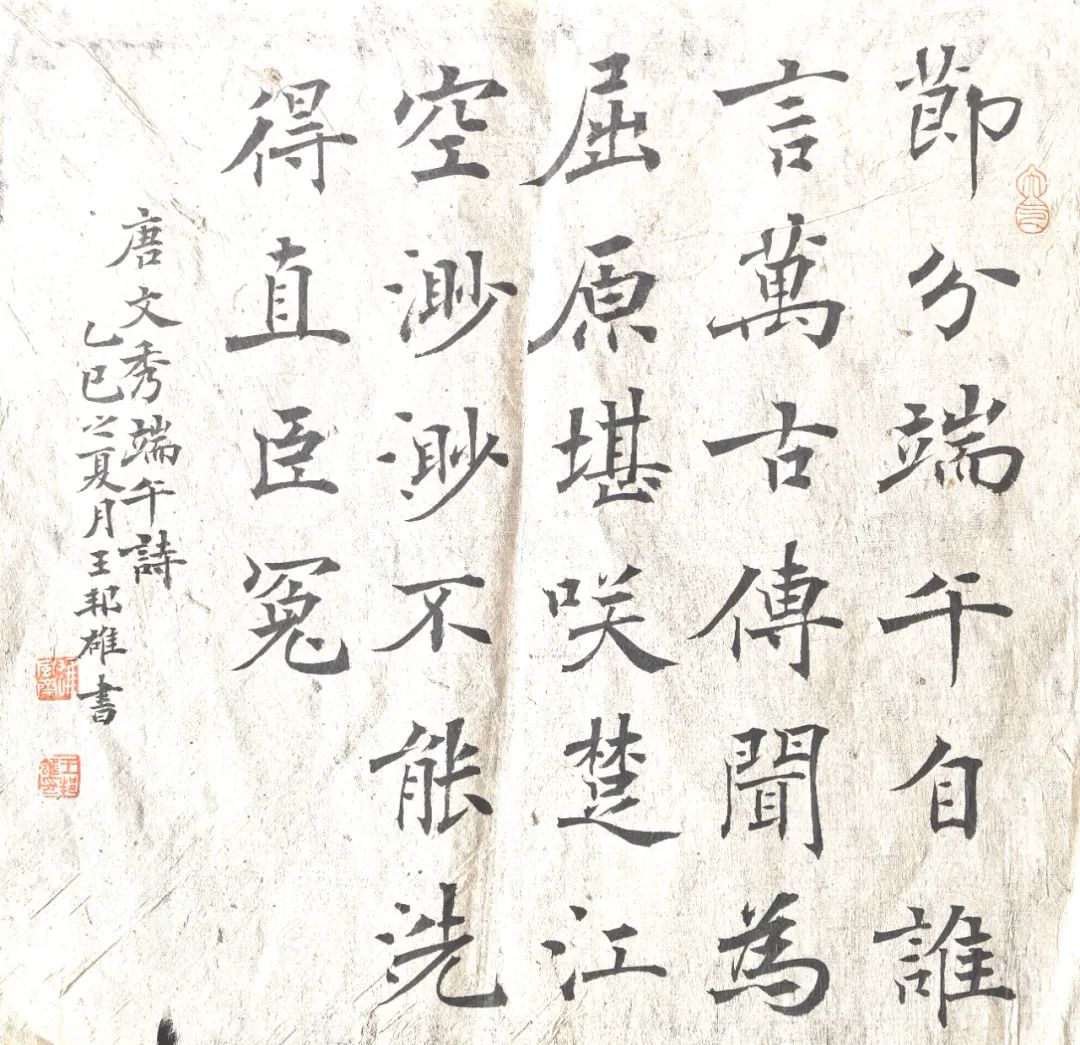 節分端午自誰
言萬古傳聞為
屈原堪咲楚江
空渺渺不能洗
得直臣冤
唐文秀端午詩
乙巳之夏月王邦雄書